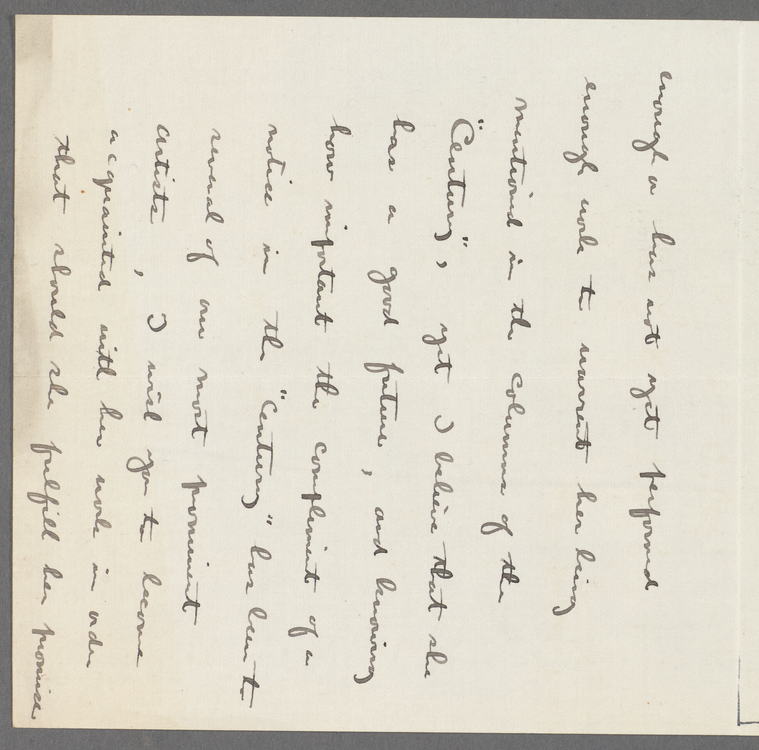 enough or has not yet performed
enough work to warrent her being
mentioned in the columns of the
"Century", yet I believe that she
has a good future, and knowing
how important the compliment of a
notice in the "Century" has been to
several of our most prominent
artists, I wish you to become
acquainted with her work in order
that should she fulfill her promise